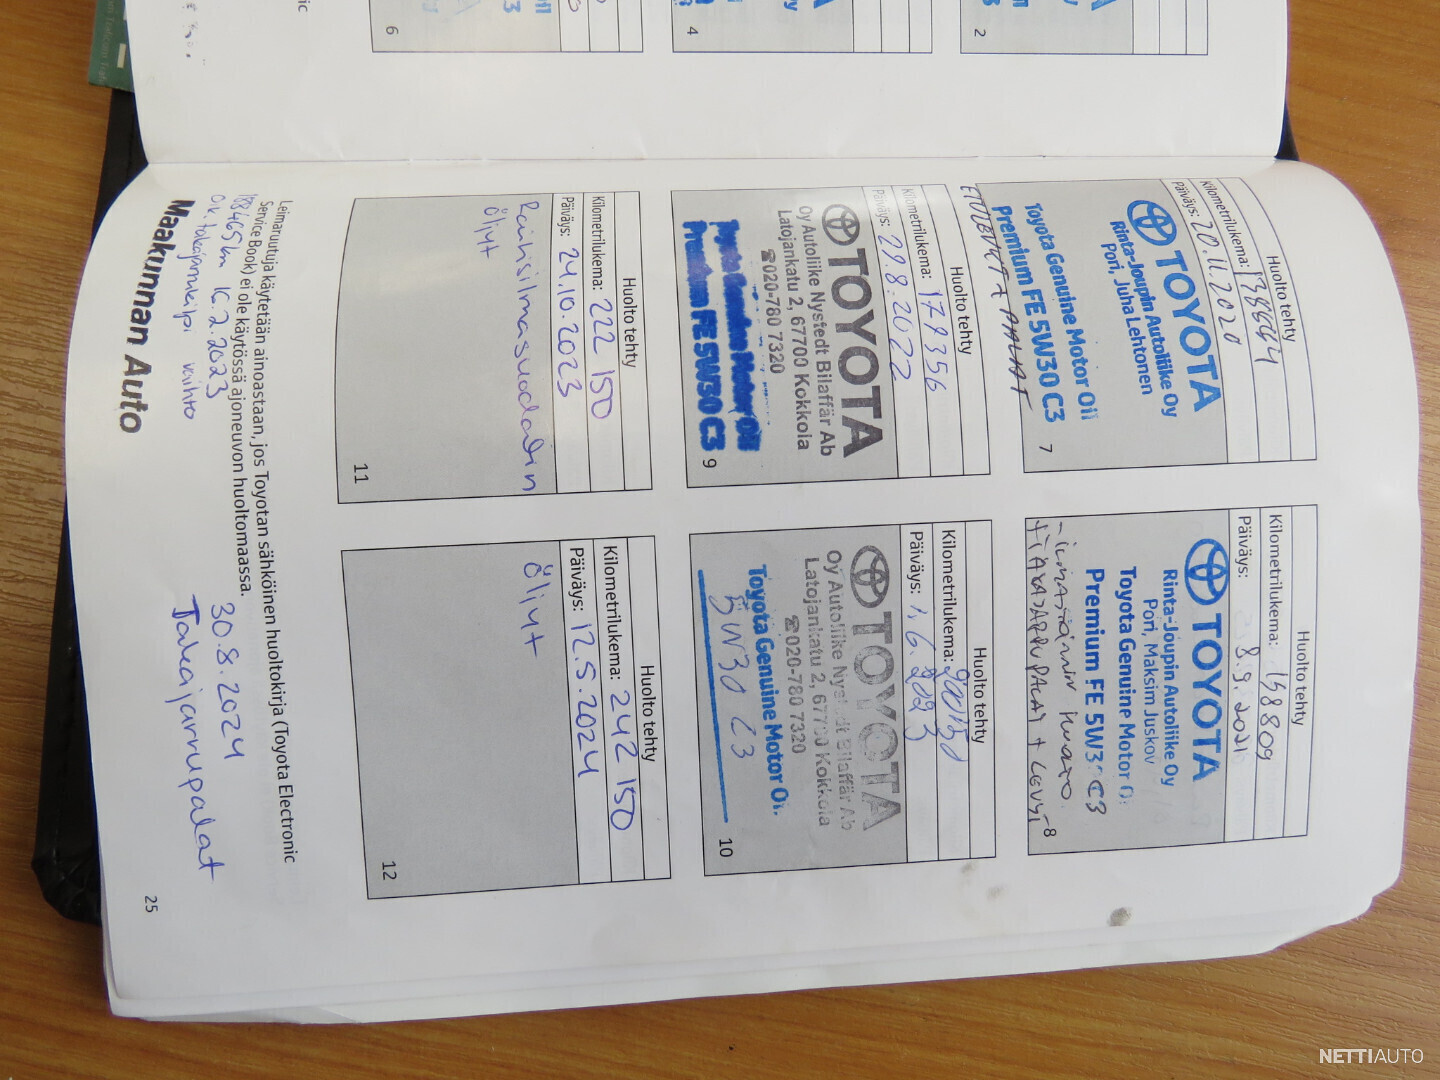 6
4
2
Huolto tehty
Kilometrilukema: 138664
Päiväys: 20.11.2020
TOYOTA
Rinta-Joupin Autoliike Oy
Pori, Juha Lehtonen
Toyota Genuine Motor Oil
Premium FE 5W30 C3
7
Huolto tehty
Kilometrilukema: 158809
Päiväys: 8.9.2021
TOYOTA
Rinta-Joupin Autoliike Oy
Pori, Maksim Juskov
Toyota Genuine Motor Oi
Premium FE 5W3 C3
8
Huolto tehty
Kilometrilukema: 179356
Päiväys: 29.8.2022
TOYOTA
Oy Autoliike Nystedt Bilaffär Ab
Latojankatu 2, 67700 Kokkola
☎020-780 7320
Toyota Genuine Motor Oil
Premium FE 5W30 C3
9
Huolto tehty
Kilometrilukema: 200150
Päiväys: 1.6.2023
TOYOTA
Oy Autoliike Nystedt Bilaffär Ab
Latojankatu 2, 67700 Kokkola
☎020-780 7320
Toyota Genuine Motor Oi.
5W30 C3
10
Huolto tehty
Kilometrilukema: 222 150
Päiväys: 24.10.2023
Raitisilmasuodatin
Öljyt
11
Huolto tehty
Kilometrilukema: 242 150
Päiväys: 12.5.2024
Öljyt
12
Leimaruutuja käytetään ainoastaan, jos Toyotan sähköinen huoltokirja (Toyota Electronic
Service Book) ei ole käytössä ajoneuvon huoltomaassa.
188465km 16.2.2023
vaihto
Maakunnan Auto
30.8.2024
Takajarrupalat
25
NETTIAUTO